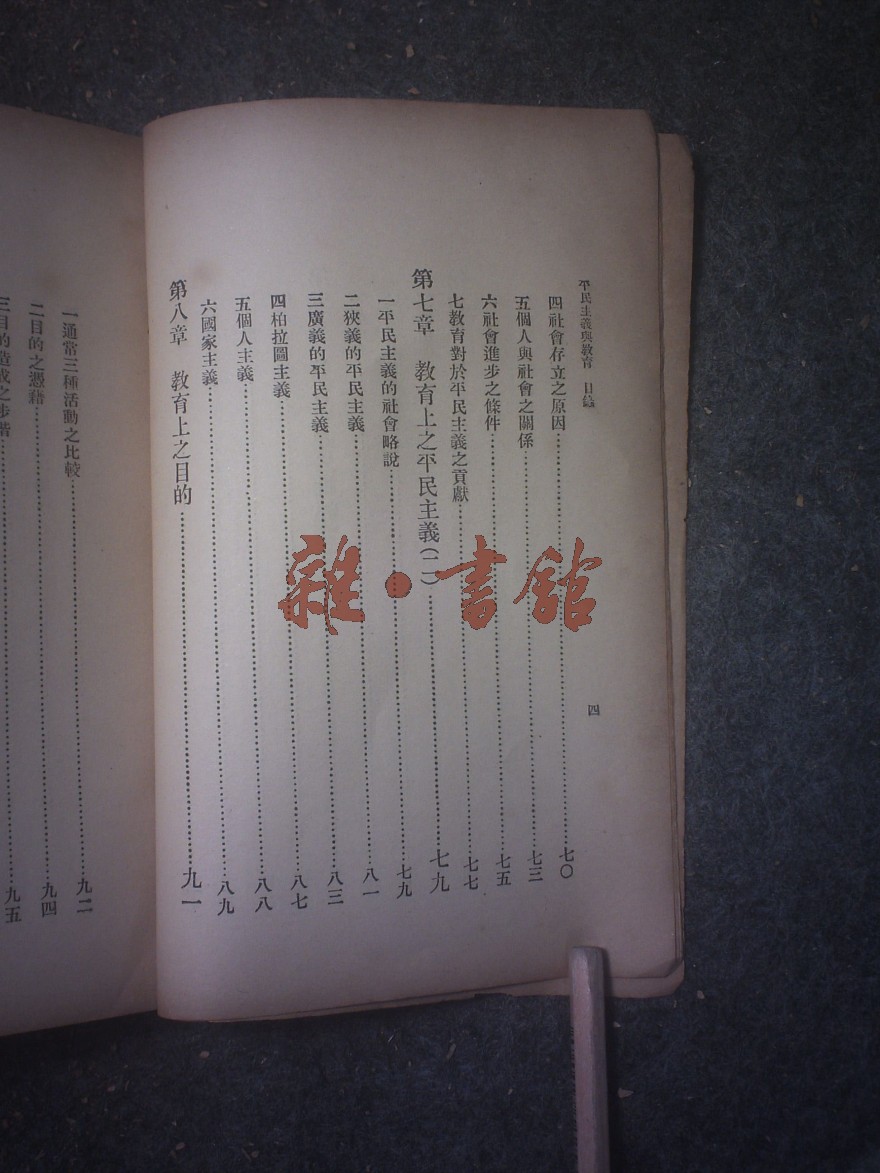 平民主義與教育 目錄
四
四社會存立之原因……七〇
五個人與社會之關係……七三
六社會進步之條件……七五
七教育對於平民主義之貢獻……七七
第七章 教育上之平民主義(二)……七九
一平民主義的社會略說……七九
二狹義的平民主義……八一
三廣義的平民主義……八三
四柏拉圖主義……八七
五個人主義……八八
六國家主義……八九
第八章 教育上之目的……九一
一通常三種活動之比較……九二
二目的之憑藉……九四
三目的造成之步階……九五
雜·書館